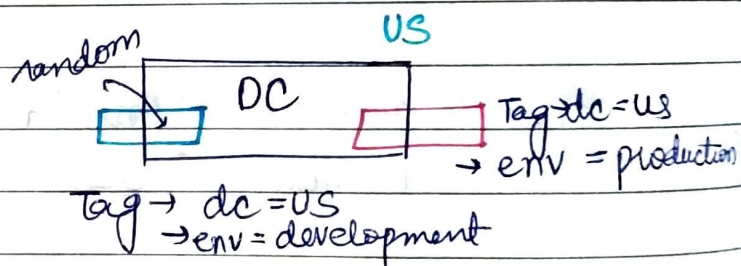 US
random
DC
Tag→dc=us
→ env = production
Tag → dc = US
→ env = development